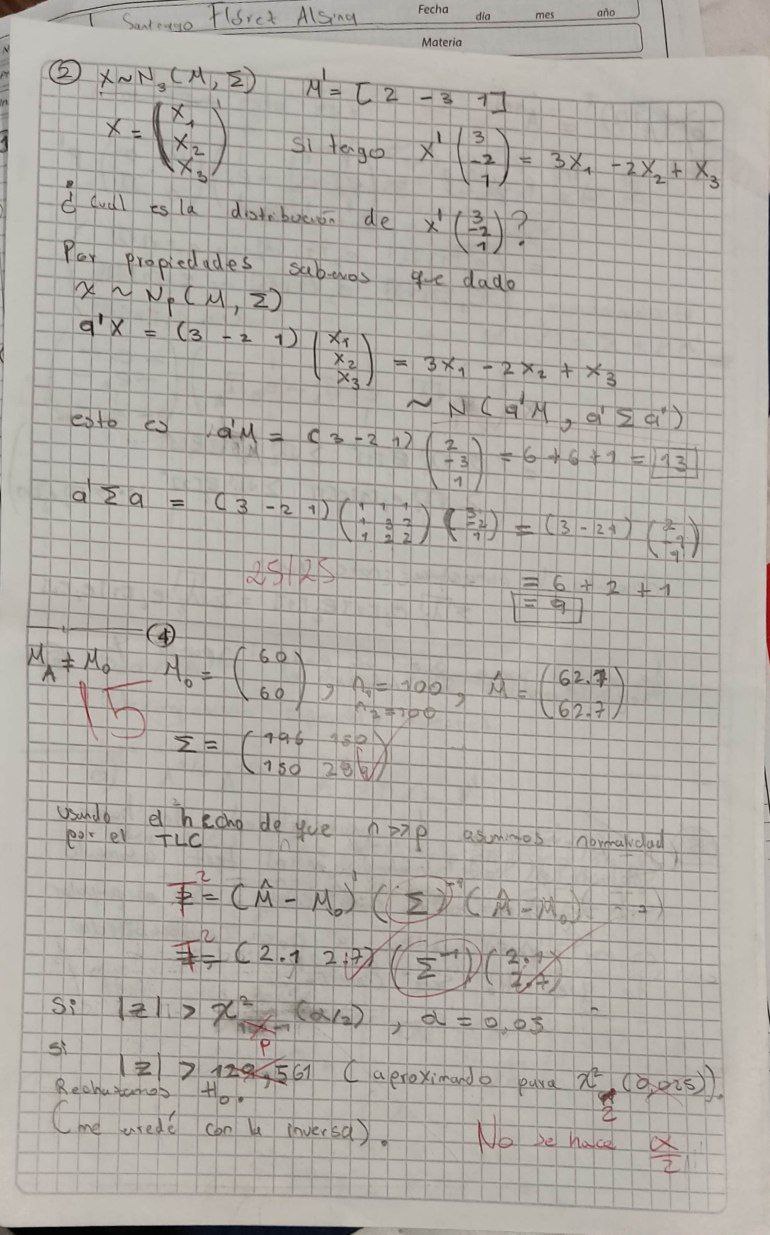 Santiago Flórez Alsina
Fecha
dia mes año
Materia
② X ~ N₃(M, Σ) M' = [2 -3 1]
X = (X₁ X₂ X₃) si tengo X' (3 -2 1) = 3X₁ - 2X₂ + X₃
¿cuál es la distribución de X' (3 -2 1)?
Por propiedades sabemos que dado
X ~ Np(M, Σ)
a'X = (3 -2 1) (X₁ X₂ X₃) = 3X₁ - 2X₂ + X₃
~ N(a'M, a'Σa')
esto es a'M = (3 -2 1) (2 -3 1) = 6 + 6 + 1 = 13
a'Σa = (3 -2 1) (1 1 1 1 3 2 1 2 2) (3 -2 1) = (3 -2 1) (2 -1 1)
25/25
= 6 + 2 + 1
= 9
④
M_A ≠ M₀ M₀ = (60 60), n₁ = 100, M̂ = (62.7 62.7)
n₂ = 100
15
Σ = (196 150 150 28)
usando el hecho de que n>>p asumimos normalidad,
por el TLC
T² = (M̂ - M₀)' (Σ)⁻¹ (M̂ - M₀)
T² = (2.1 2.7) (Σ⁻¹) (2.1 2.7)
Si |z| > χ² (α/2), α = 0,05
p
si
|z| > 129,561 (aproximando para χ² (0,025)).
2
Rechazamos H₀.
(me quedé con la inversa).
No se hace α/2